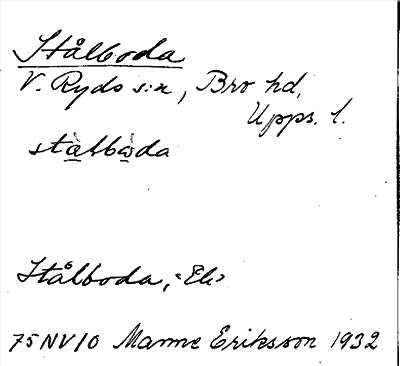 Stålboda
V. Ryds s:n, Bro hd,
Upps. l.
stålboda
Stålboda, <Ek>
75NV/0 Manne Eriksson 1932